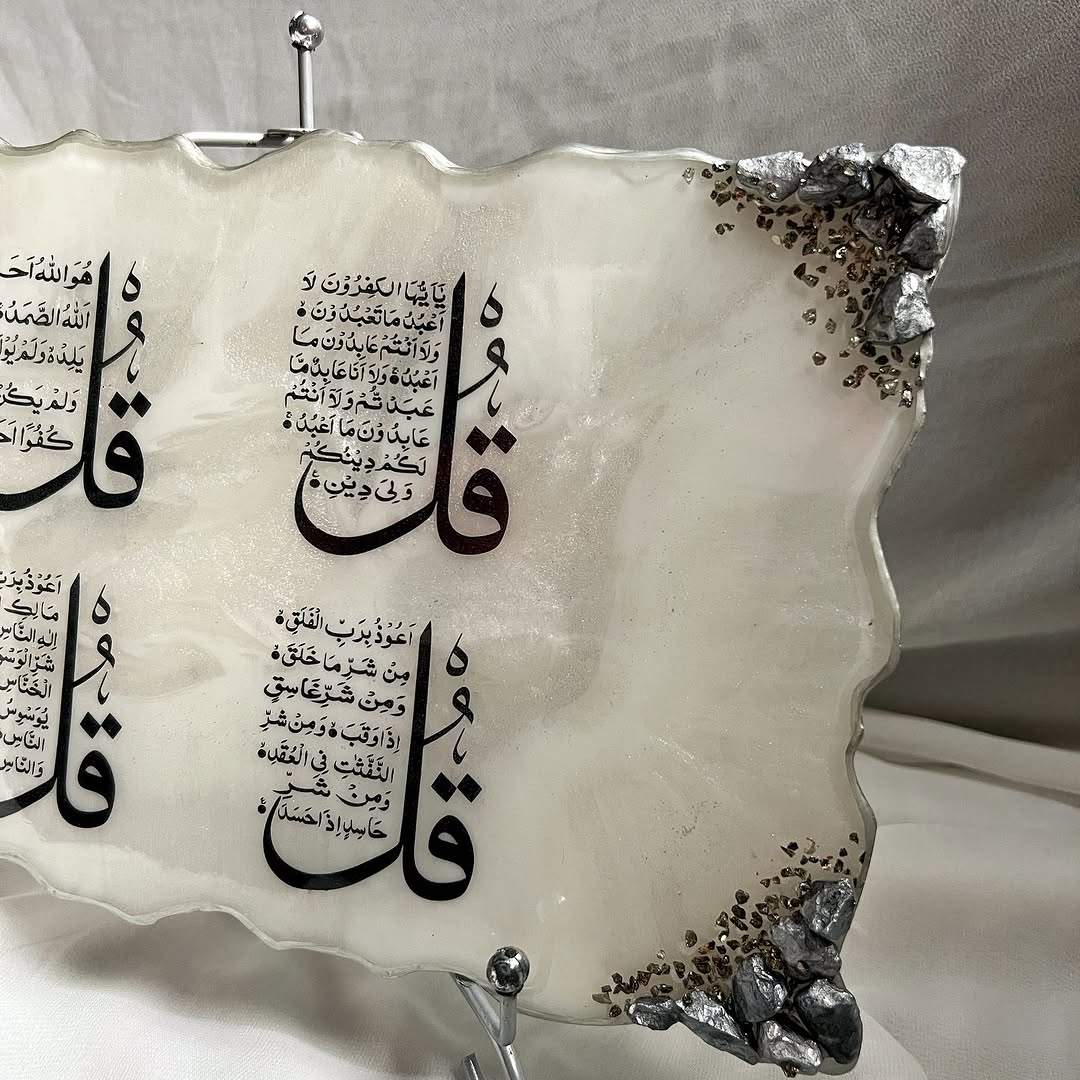 قُلْ
يٰٓاَيُّهَا الْكٰفِرُوْنَ لَا
اَعْبُدُ مَا تَعْبُدُوْنَ
وَلَا اَنْتُمْ عَابِدُوْنَ مَا
اَعْبُدُ وَلَا اَنَا عَابِدٌ مَّا
عَبَدْتُّمْ وَلَا اَنْتُمْ
عَابِدُوْنَ مَا اَعْبُدُ
لَكُمْ دِيْنُكُمْ
وَلِيَ دِيْنِ
قُلْ
هُوَ اللهُ اَحَ
اَللهُ الصَّمَدُ
يَلِدْ وَلَمْ يُوْلَ
وَلَمْ يَكُنْ
كُفُوًا اَحَ
قُلْ
اَعُوْذُ بِرَبِّ الْفَلَقِ
مِنْ شَرِّ مَا خَلَقَ
وَمِنْ شَرِّ غَاسِقٍ
اِذَا وَقَبَ وَمِنْ شَرِّ
النَّفّٰثٰتِ فِى الْعُقَدِ
وَمِنْ شَرِّ
حَاسِدٍ اِذَا حَسَدَ
قُلْ
اَعُوْذُ بِرَبِّ
مَالِكِ
اِلٰهِ النَّاسِ
شَرِّ الْوَسْوَ
الْخَنَّاسِ
يُوَسْوِسُ
النَّاسِ
وَالنَّاسِ